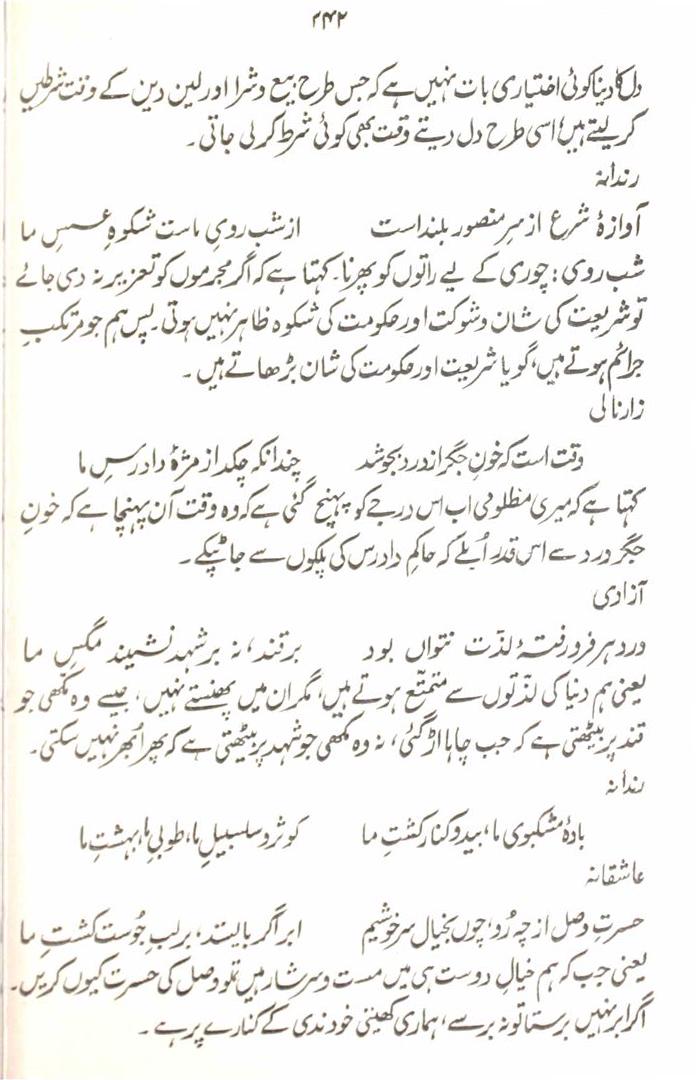 ۲۴۲
دل کا دینا کوئی اختیاری بات نہیں ہے کہ جس طرح بیع و شرا اور لین دین کے وقت شرطیں
کر لیتے ہیں، اسی طرح دل دیتے وقت بھی کوئی شرط کر لی جاتی۔
رندانہ
آوازۂ شرع از سرِ منصور بلند است از شب رویِ ماست شکوہِ عسسِ ما
شب روی: چوری کے لیے راتوں کو پھرنا۔ کہتا ہے کہ اگر مجرموں کو تعزیر نہ دی جائے
تو شریعت کی شان و شوکت اور حکومت کی شکوہ ظاہر نہیں ہوتی۔ پس ہم جو مرتکبِ
جرائم ہوتے ہیں، گویا شریعت اور حکومت کی شان بڑھاتے ہیں۔
زارنالی
وقت است کہ خونِ جگر از درد بجوشد چندانکہ چکد از مژۂ دادرسِ ما
کہتا ہے کہ میری مظلومی اب اس درجے کو پہنچ گئی ہے کہ وہ وقت آن پہنچا ہے کہ خونِ
جگر درد سے اس قدر اُبلے کہ حاکمِ دادرس کی پلکوں سے جا ٹپکے۔
آزادی
در دہر فرو رفتۂ لذّت نتواں بود بر قند، نہ بر شہد نشیند مگسِ ما
یعنی ہم دنیا کی لذّتوں سے متمتّع ہوتے ہیں، مگر ان میں پھنستے نہیں، جیسے وہ مکھی جو
قند پر بیٹھتی ہے کہ جب چاہا اڑ گئی، نہ وہ مکھی جو شہد پر بیٹھتی ہے کہ پھر اُبھر نہیں سکتی۔
رندانہ
بادۂ مشکبوی ما، بید و کنار کشتِ ما کوثر و سلسبیلِ ما، طوبیِ ما، بہشتِ ما
عاشقانہ
حسرتِ وصل از چہ رُو، چوں بخیال سرخوشیم ابر اگر بایستد، بر لبِ جُوست کشتِ ما
یعنی جب کہ ہم خیالِ دوست ہی میں مست و سرشار ہیں تو وصل کی حسرت کیوں کریں۔
اگر ابر نہیں برستا تو نہ برسے، ہماری کھیتی خود ندی کے کنارے پر ہے۔